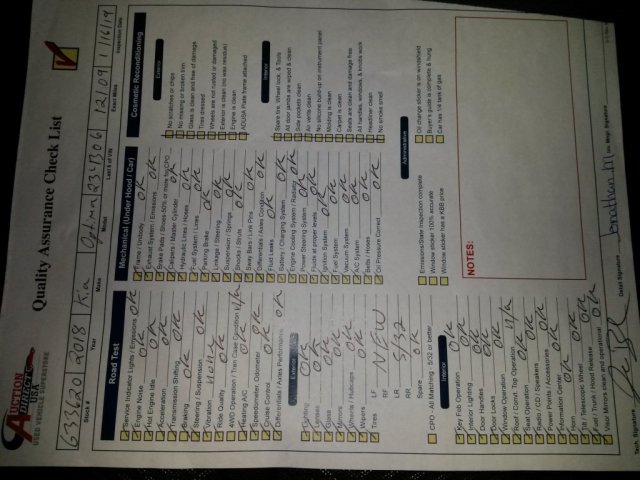 AUCTION
DIRECT
USA
USED VEHICLE SUPERSTORE
Quality Assurance Check List
2018 Kia Optima
Stock # Year Make Model Last 8 of VIN Exact Miles Inspection Date
Road Test
Service Indicator Lights / Emissions OK
Engine Noise OK
Hot Engine Idle OK
Acceleration OK
Transmission Shifting OK
Braking OK
Steering / Suspension OK
Vibration None
Ride Quality OK
4WD Operation / Tran Case Condition N/A
Heating A/C OK
Speedometer, Odometer OK
Cruise Control OK
Differentials / Axles Performance OK
Exterior
Lighting OK
Lenses OK
Glass OK
Mirrors OK
Wheels / Hubcaps OK
Wipers OK
Tires LF NEW
RF
LR 5/32
RR
Spare OK
CPO - All Matching - 5/32 or better
Interior
Key Fob Operation OK
Interior Lighting OK
Door Handles OK
Door Locks OK
Window Operation OK
Roof / Convt. Top Operation N/A
Seat Operation OK
Radio / CD / Speakers OK
Power Points / Accessories OK
Information Center OK
Horn OK
Tilt / Telescopic Wheel OK
Fuel / Trunk / Hood Release OK
Visor Mirrors clean and operational OK
Mechanical (Under Hood / Car)
Frame / Unibody OK
Exhaust System / Emissions OK
Brake Pads / Shoes-50% or more for CPO OK
Calipers / Master Cylinder OK
Hydraulic Lines / Hoses OK
Fuel System / Lines OK
Parking Brake OK
Linkage / Steering OK
Suspension / Springs OK
Shocks / Struts OK
Sway Bars / Link Pins OK
Differentials / Axles Condition OK
Fluid Leaks OK
Battery / Charging System OK
Engine Cooling System / Radiator OK
Power Steering System OK
Fluids at proper levels OK
Ignition System OK
Fuel System OK
Vacuum System OK
A/C System OK
Belts / Hoses OK
Oil Pressure Correct OK
Cosmetic Reconditioning
Exterior
No scratches or chips
No missing or broken trim
Glass is clean and free of damage
Tires dressed
Wheels are not rusted or damaged
Exterior is clean (no wax residue)
Engine is clean
ADUSA Plate frame attached
Interior
Spare tire, Wheel lock, & Tools
All door jambs are wiped & clean
Side pockets clean
Air vents clean
No silicone build-up on instrument panel
Molding is clean
Carpet is clean
Seats are clean and damage free
All handles, windows, & knobs work
Headliner clean
No smoke smell
Administrative
Emissions/State Inspection complete
Window sticker 100% accurate
Window sticker has a KBB price
Oil change sticker is on windshield
Buyer's guide is complete & hung
Car has 1/4 tank of gas
NOTES:
Tech. Signature Detail Signature Inv. Mngr. Signature
Jonathan M